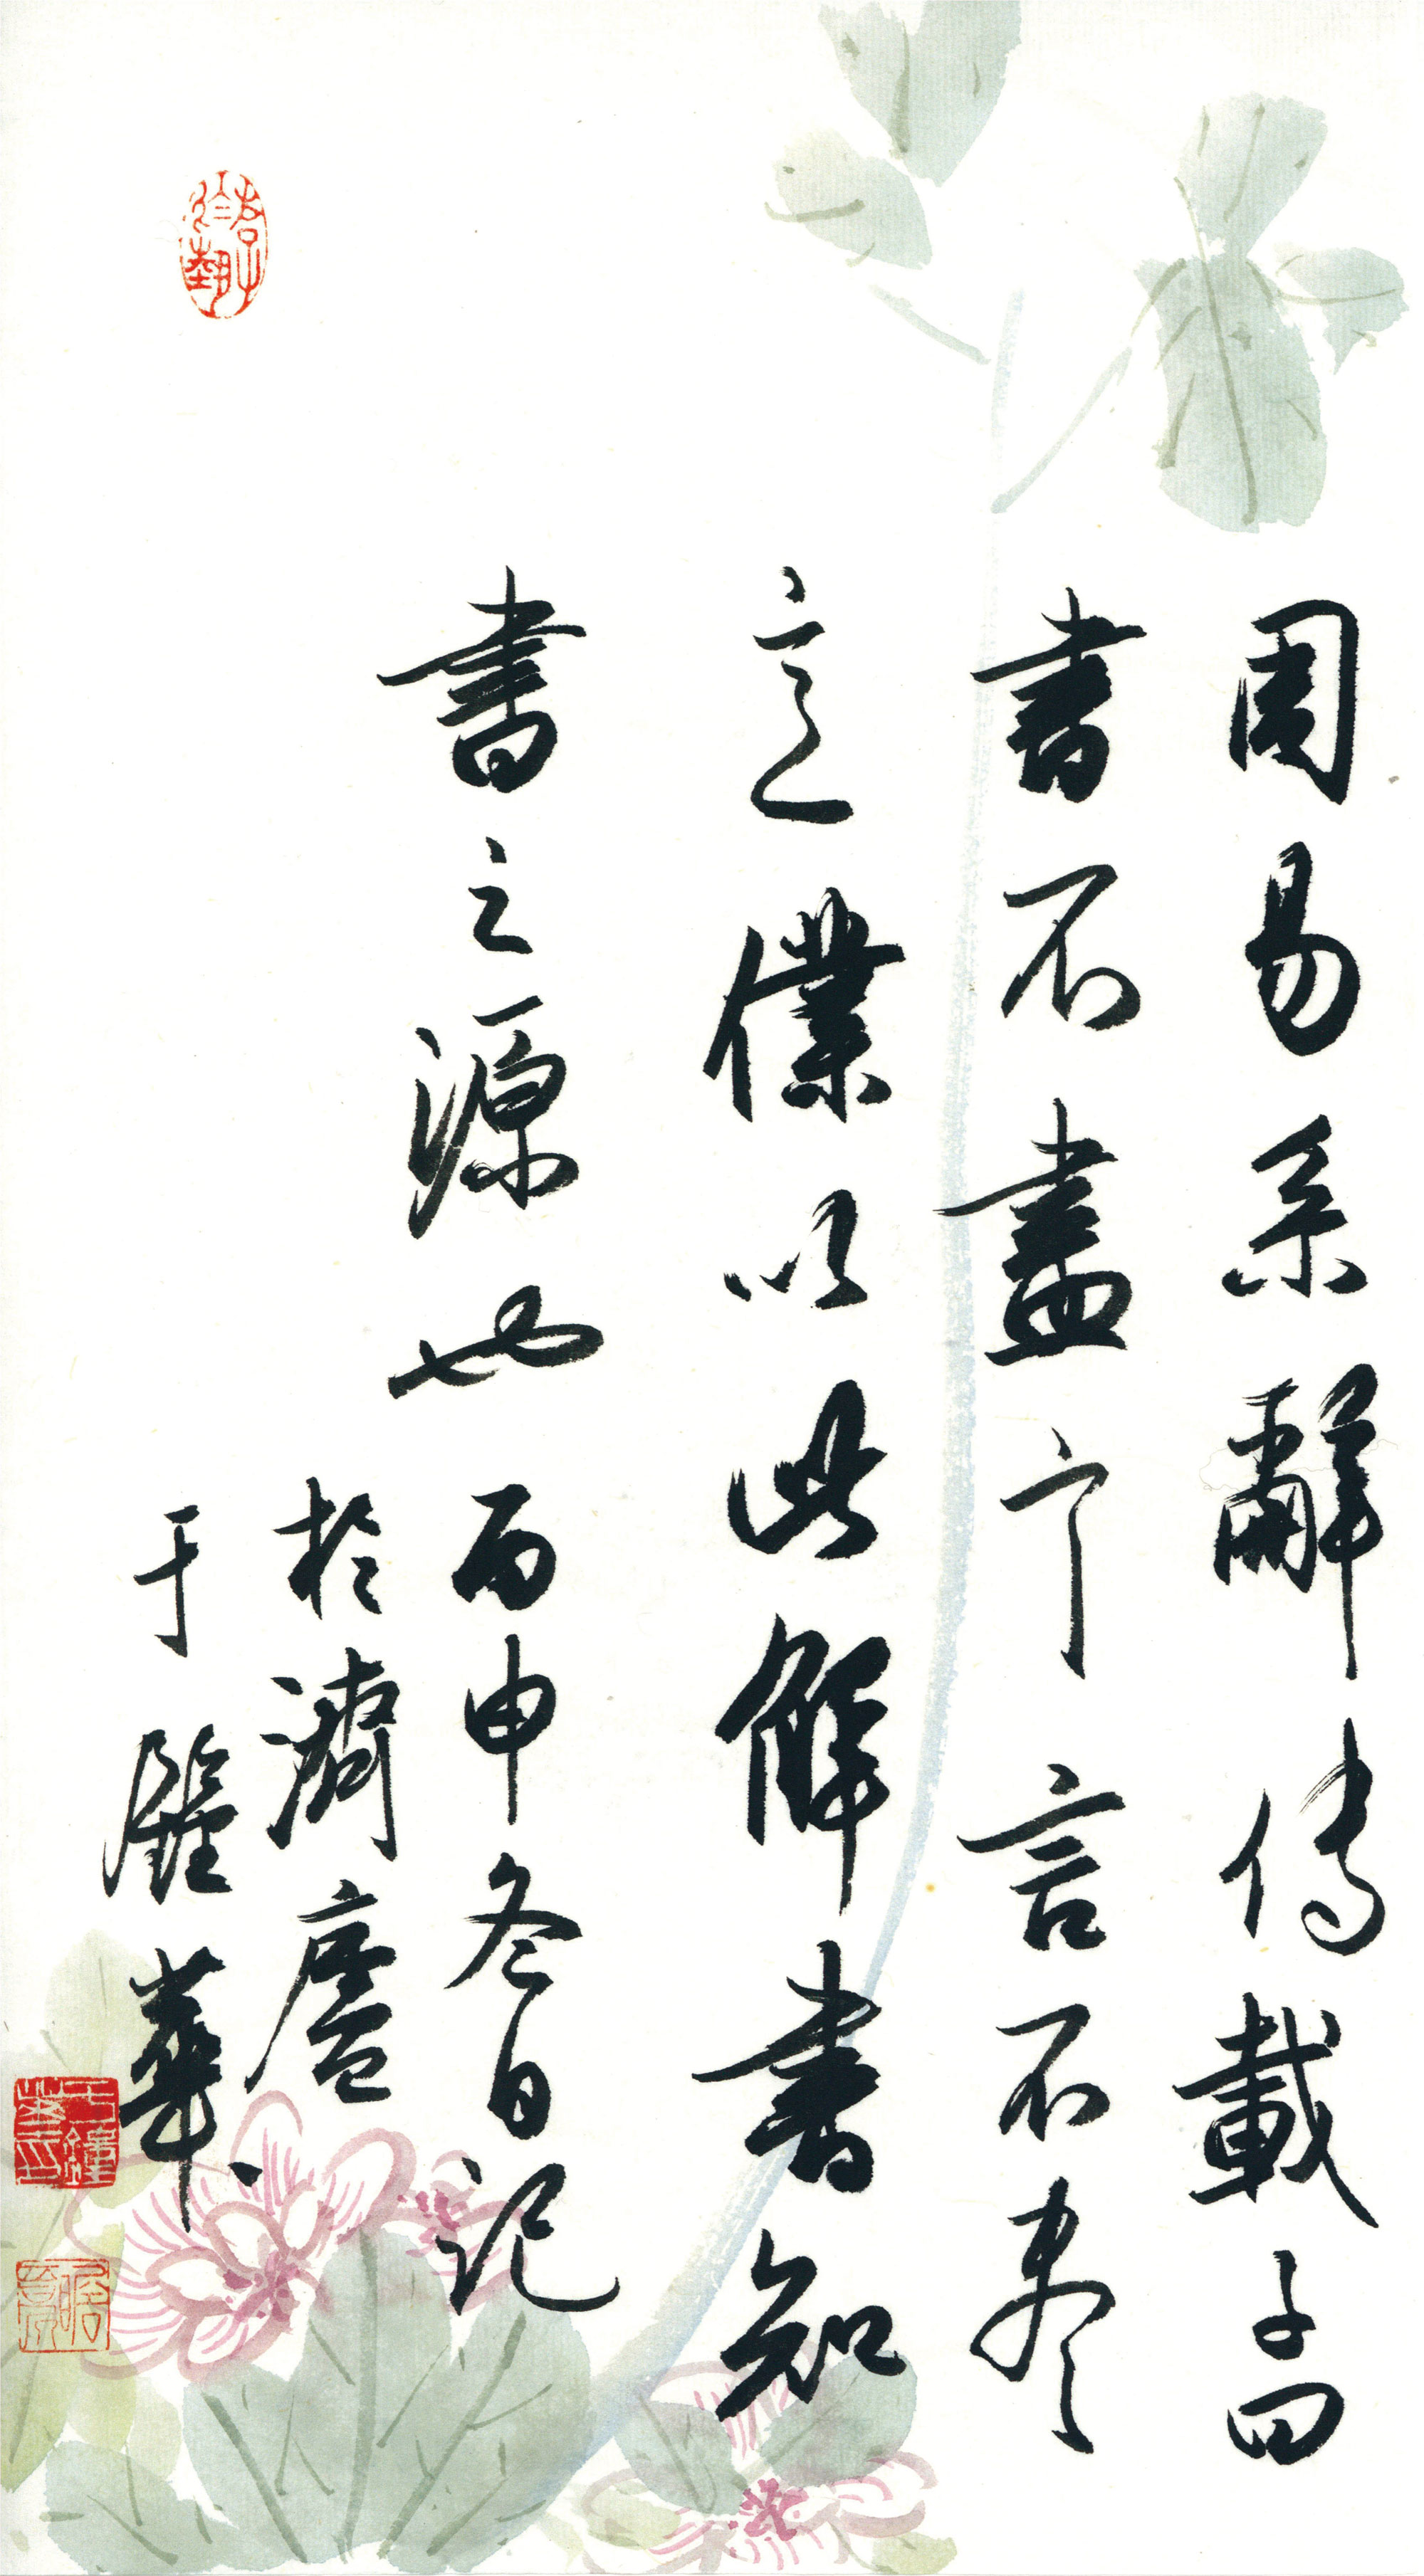 周易系辭傳載子曰
書不盡言言不盡
意僕以此解書知
書之源也 丙申冬日記
於濟廬
于鍾華
于鍾華印